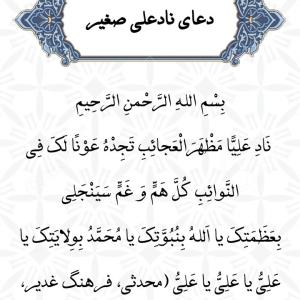 دعای نادعلی صغیر
بِسْمِ اللهِ الرَّحْمنِ الرَّحِیمِ
نَادِ عَلِیًّا مَظْهَرَ الْعَجائِبِ تَجِدْهُ عَوْنًا لَکَ فِی
النَّوائِبِ کُلَّ هَمٍّ وَ غَمٍّ سَیَنْجَلِی
بِعَظَمَتِکَ یا اَللهُ بِنُبُوَّتِکَ یا مُحَمَّدُ بِوِلایَتِکَ یا
عَلِیُّ یا عَلِیُّ یا عَلِیُّ (محدثی، فرهنگ غدیر،